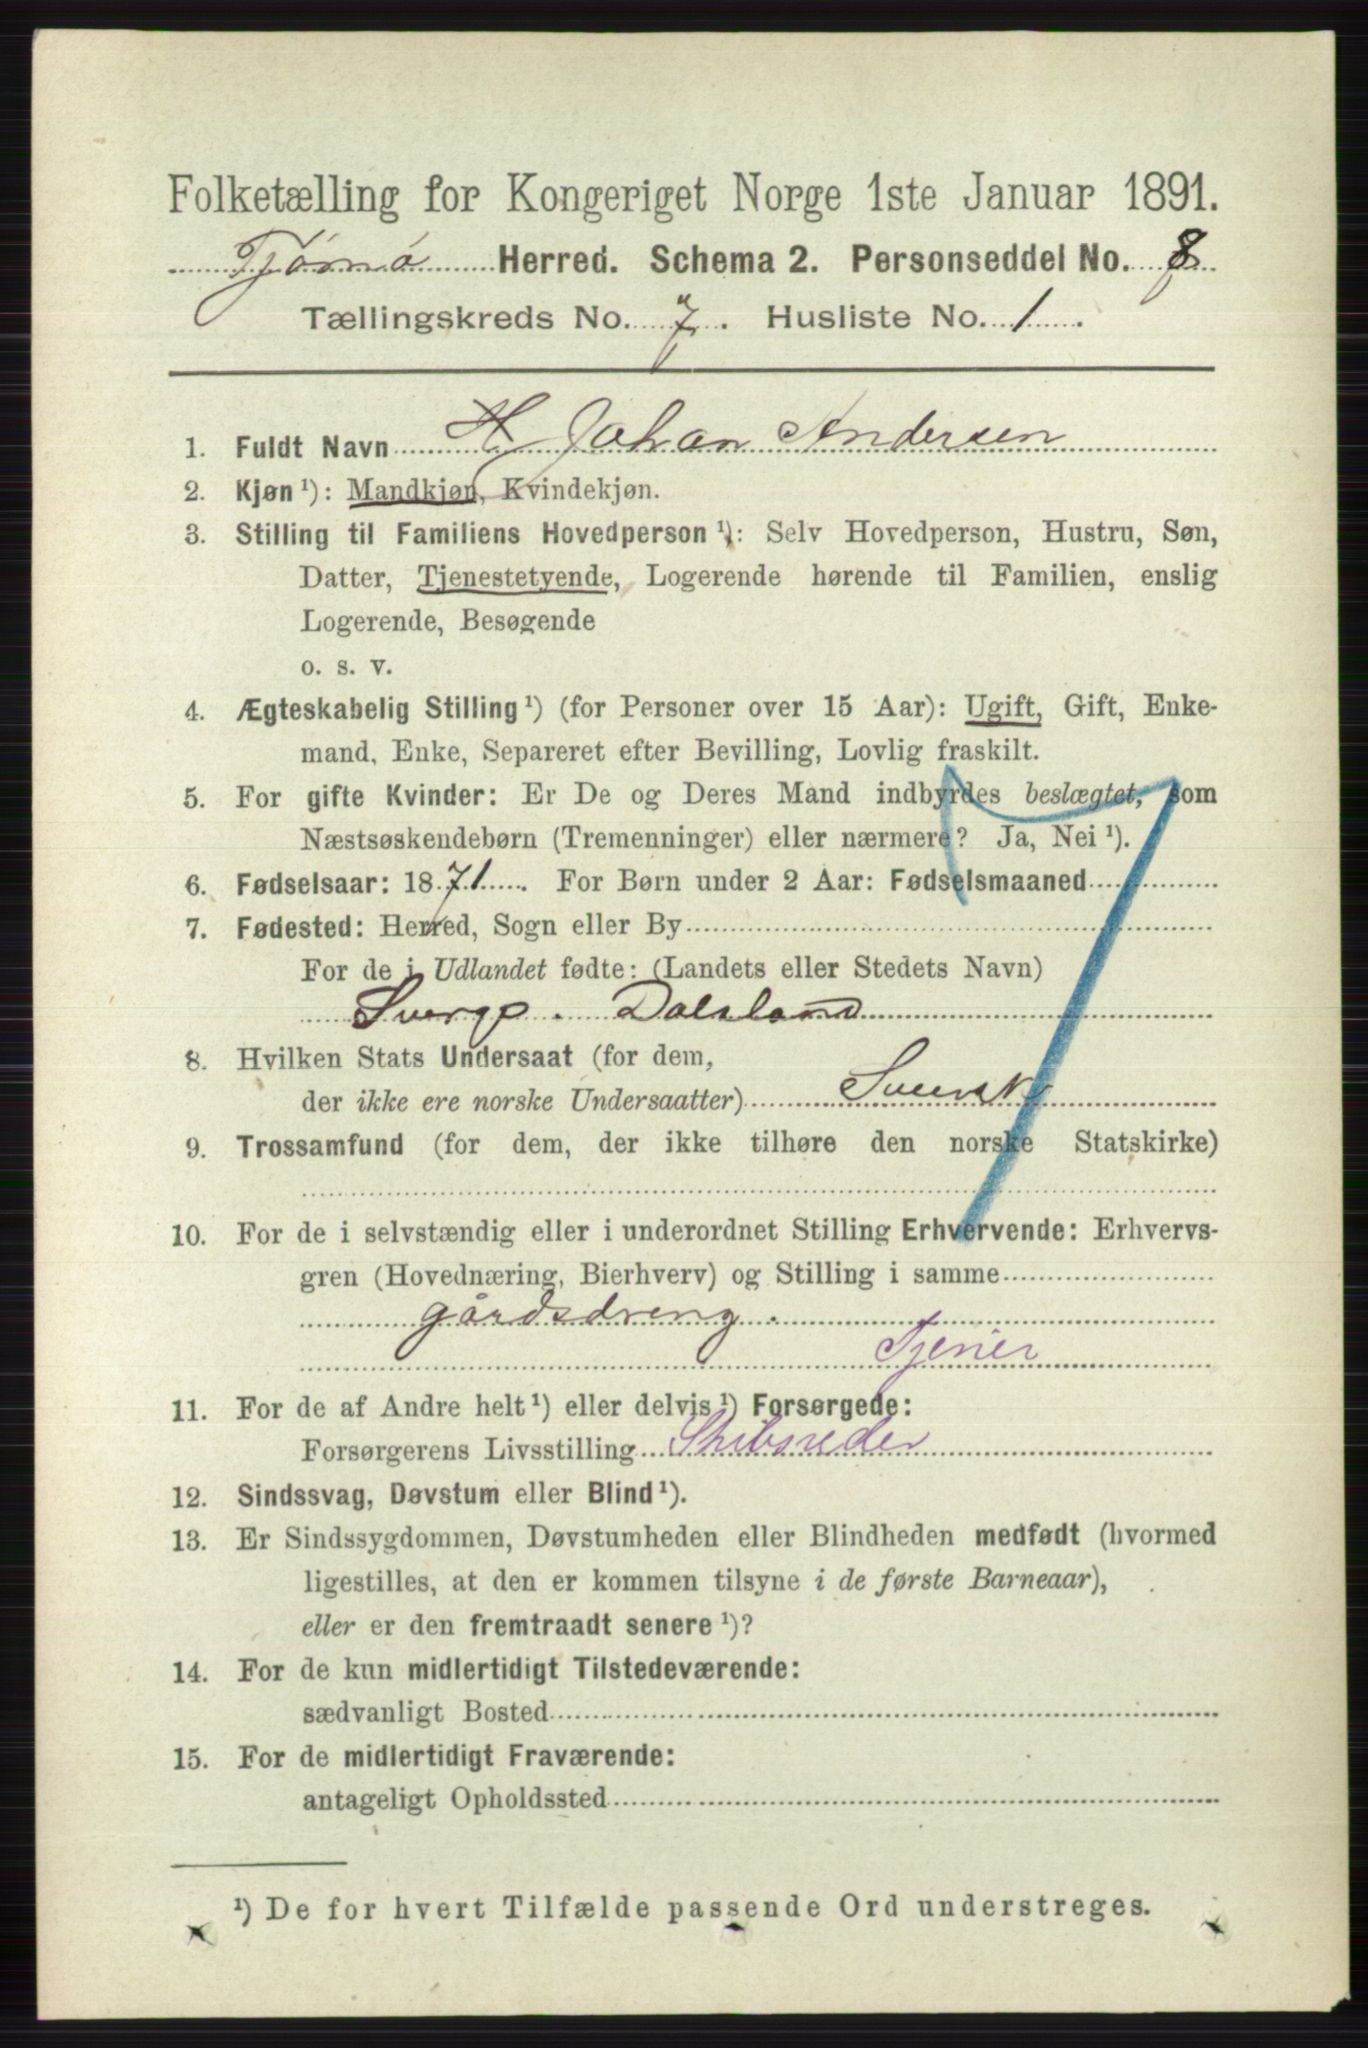 Folketælling for Kongeriget Norge 1ste Januar 1891.
Tjømø Herred. Schema 2. Personseddel No. 8
Tællingskreds No. 7. Husliste No. 1.
1. Fuldt Navn Johan Andersen
2. Kjøn ¹): Mandkjøn, Kvindekjøn.
3. Stilling til Familiens Hovedperson ¹): Selv Hovedperson, Hustru, Søn,
Datter, Tjenestetyende, Logerende hørende til Familien, enslig
Logerende, Besøgende
o. s. v.
4. Ægteskabelig Stilling ¹) (for Personer over 15 Aar): Ugift, Gift, Enke-
mand, Enke, Separeret efter Bevilling, Lovlig fraskilt.
5. For gifte Kvinder: Er De og Deres Mand indbyrdes beslægtet, som
Næstsøskendebørn (Tremenninger) eller nærmere? Ja, Nei ¹).
6. Fødselsaar: 1871. For Børn under 2 Aar: Fødselsmaaned
7. Fødested: Herred, Sogn eller By
For de i Udlandet fødte: (Landets eller Stedets Navn)
Sverge. Dalsland
8. Hvilken Stats Undersaat (for dem,
der ikke ere norske Undersaatter) Svensk
9. Trossamfund (for dem, der ikke tilhøre den norske Statskirke)
10. For de i selvstændig eller i underordnet Stilling Erhvervende: Erhvervs-
gren (Hovednæring, Bierhverv) og Stilling i samme
gårdsdreng.
Tjener
11. For de af Andre helt ¹) eller delvis ¹) Forsørgede:
Forsørgerens Livsstilling Skibsreder
12. Sindssvag, Døvstum eller Blind ¹).
13. Er Sindssygdommen, Døvstumheden eller Blindheden medfødt (hvormed
ligestilles, at den er kommen tilsyne i de første Barneaar),
eller er den fremtraadt senere ¹)?
14. For de kun midlertidigt Tilstedeværende:
sædvanligt Bosted
15. For de midlertidigt Fraværende:
antageligt Opholdssted
¹) De for hvert Tilfælde passende Ord understreges.